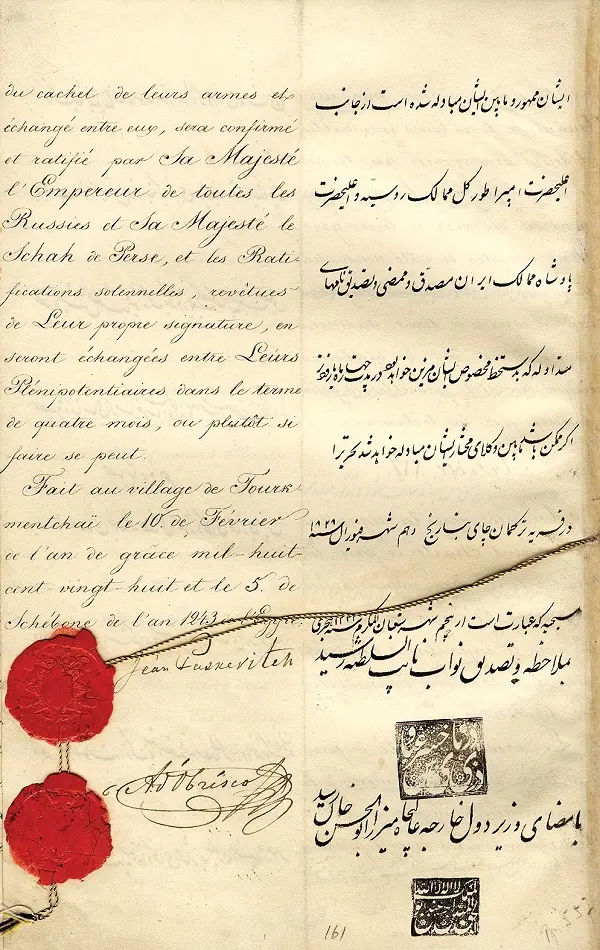 du cachet de leurs armes et
échangé entre eux, sera confirmé
et ratifié par Sa Majesté
l'Empereur de toutes les
Russies et Sa Majesté le
Schah de Perse, et les Rati-
fications solennelles, revêtues
de Leur propre signature, en
seront échangées entre Leurs
Plénipotentiaires dans le terme
de quatre mois, ou plutôt si
faire se peut.
Fait au village de Tourk-
mentchaï le 10. de Février
de l'an de grâce mil-huit-
cent-vingt-huit et le 5. de
Schébone de l'an 1243
Jean Paskevitch
ایشان ممهور و مابین ایشان مبادله شده است از جانب
اعلیحضرت امپراطور کل ممالک روسیه و اعلیحضرت
پادشاه ممالک ایران مصدق و ممضی و تصدیق نامهای
متداوله که بدستخط مخصوص ایشان مزین خواهد بود در مدت چهار ماه یا زودتر
اگر ممکن باشد مابین وکلای مختار ایشان مبادله خواهد شد تحریرا
در قریه ترکمان چای بتاریخ دهم شهر فیورال سنه ۱۸۲۸
مسیحیه که عبارت است از پنجم شهر شعبان سنه ۱۲۴۳ هجری
بملاحظه و تصدیق نواب نایب السلطنه رسید
بامضای وزیر دول خارجه عالیجاه میرزا ابوالحسن خان رسید
161